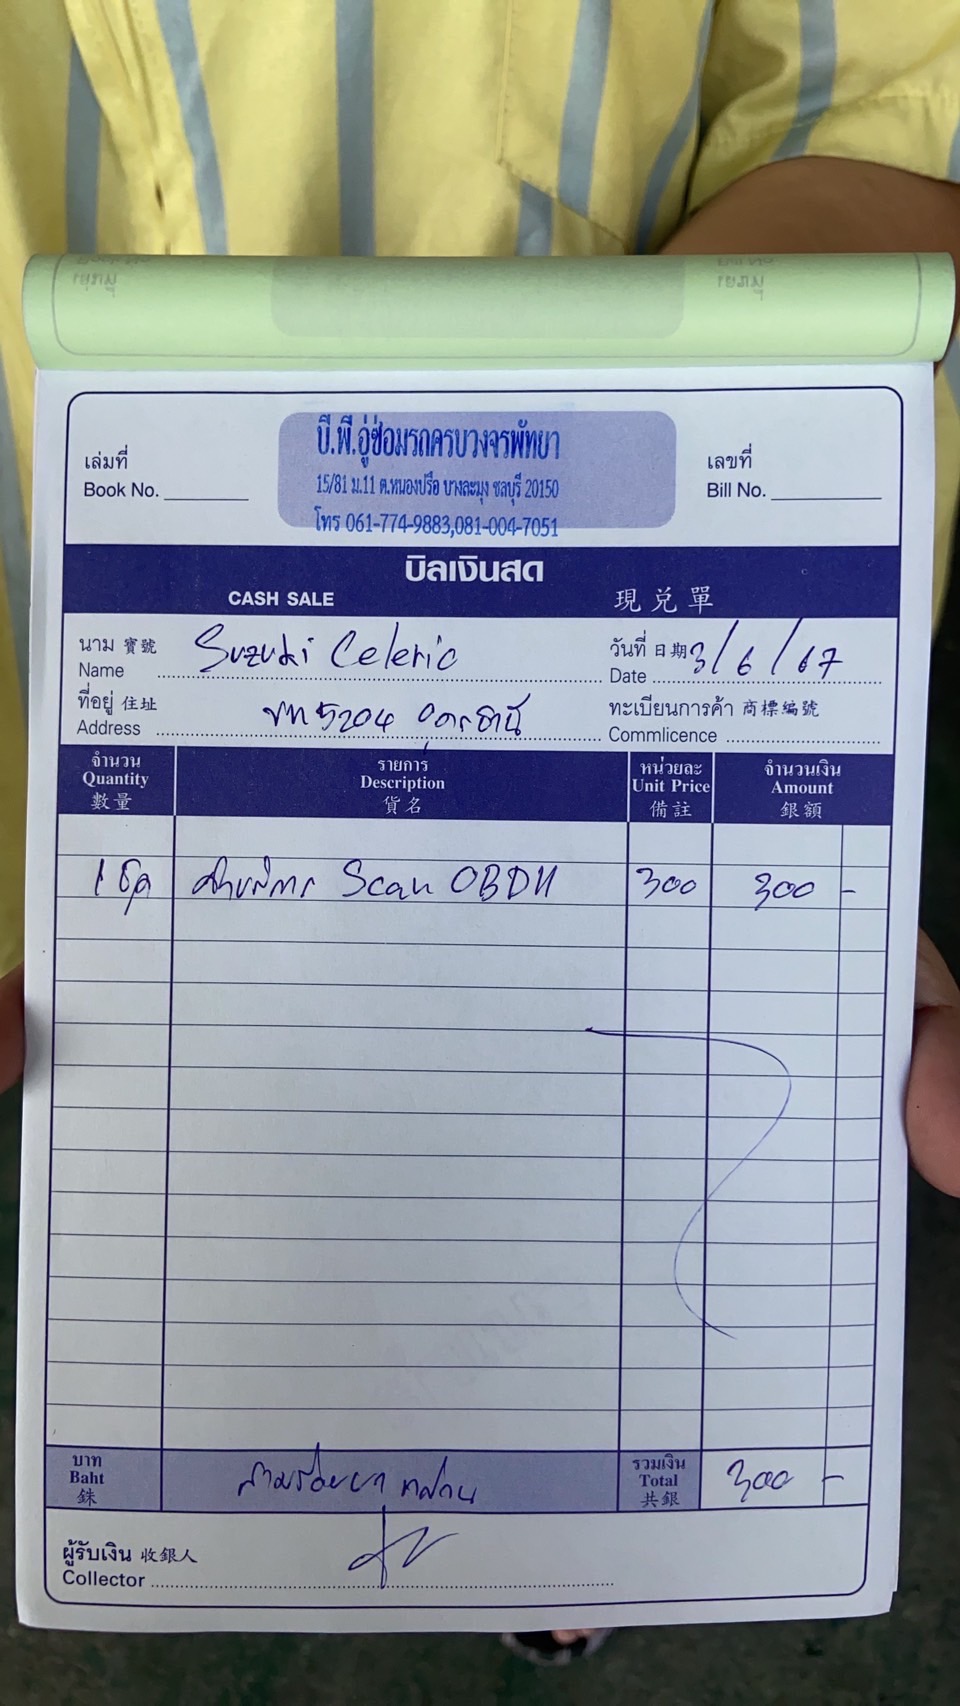 เล่มที่
Book No.
บี.พี.อู่ซ่อมรถครบวงจรพัทยา
15/81 ม.11 ต.หนองปรือ บางละมุง ชลบุรี 20150
โทร 061-774-9883,081-004-7051
เลขที่
Bill No.
บิลเงินสด
CASH SALE 現兌單
นาม 寶號 Suzuki Celeric วันที่ 日期 3/6/67
Name Date
ที่อยู่ 住址 5204 อุดรธานี ทะเบียนการค้า 商標編號
Address Commlicence
จำนวน รายการ หน่วยละ จำนวนเงิน
Quantity Description Unit Price Amount
數量 貨名 備註 銀額
1 ชุด ค่าบริการ Scan OBDII 300 300 -
บาท สามร้อยบาท รวมเงิน 300 -
Baht Total
銖 共銀
ผู้รับเงิน 收銀人
Collector